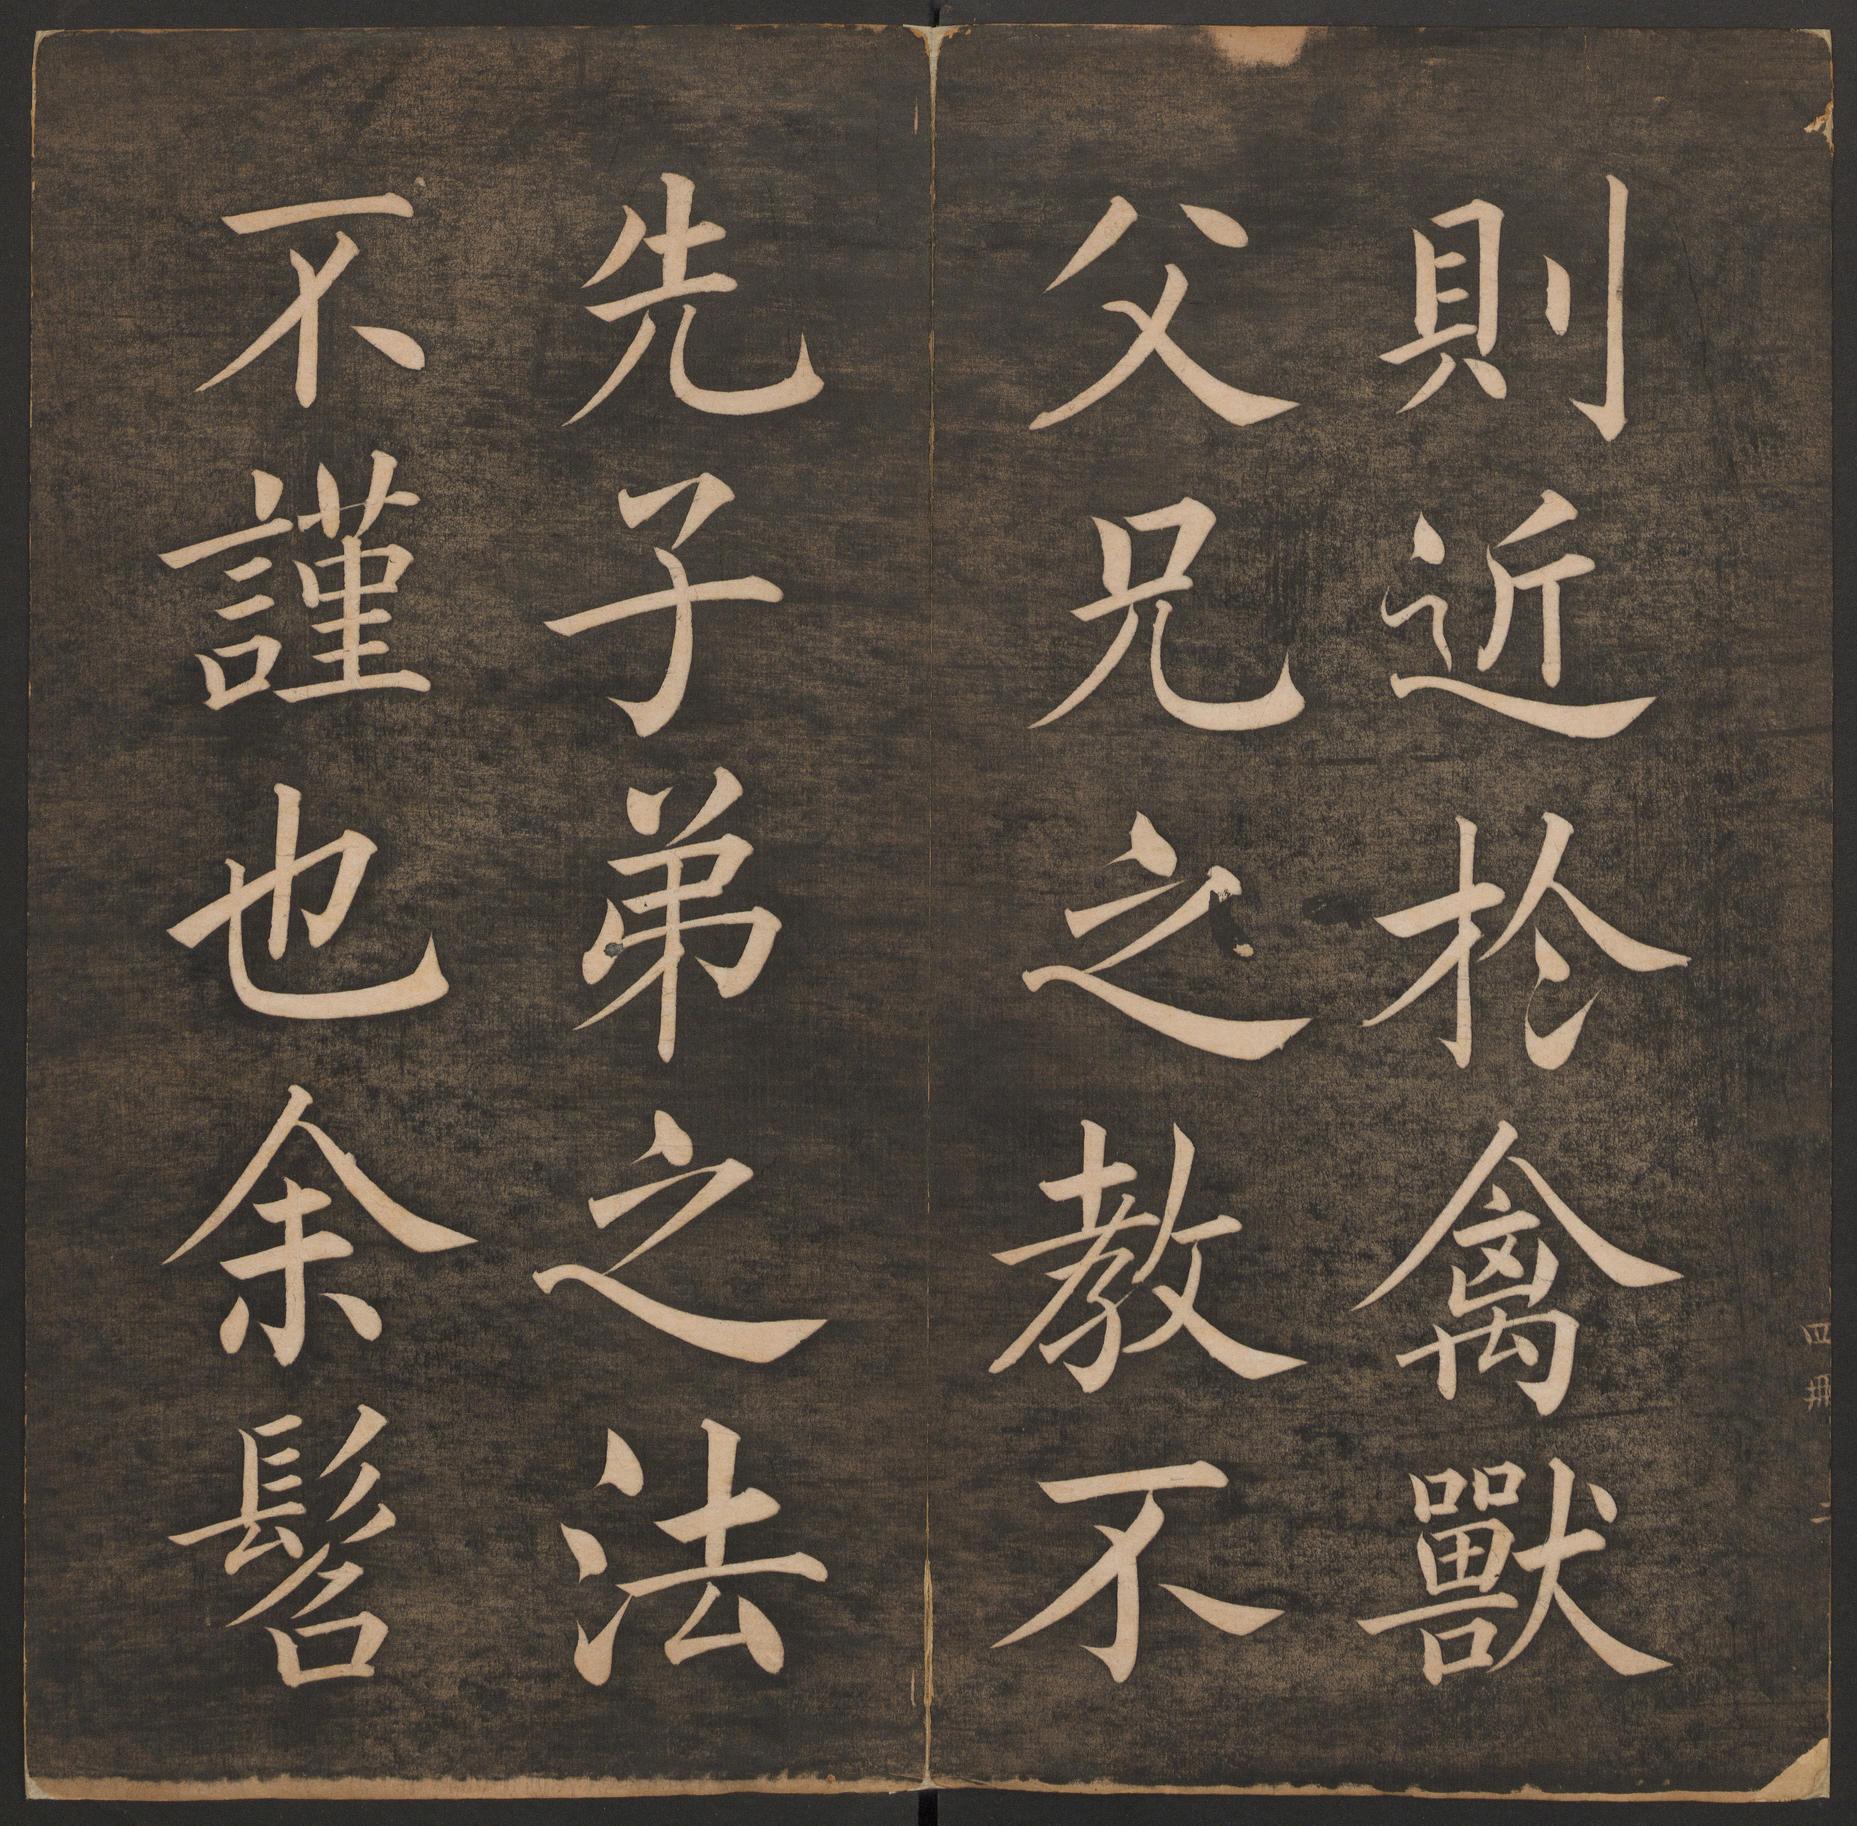 則近於禽獸
父兄之教不
先子弟之法
不謹也余髫
四冊 二